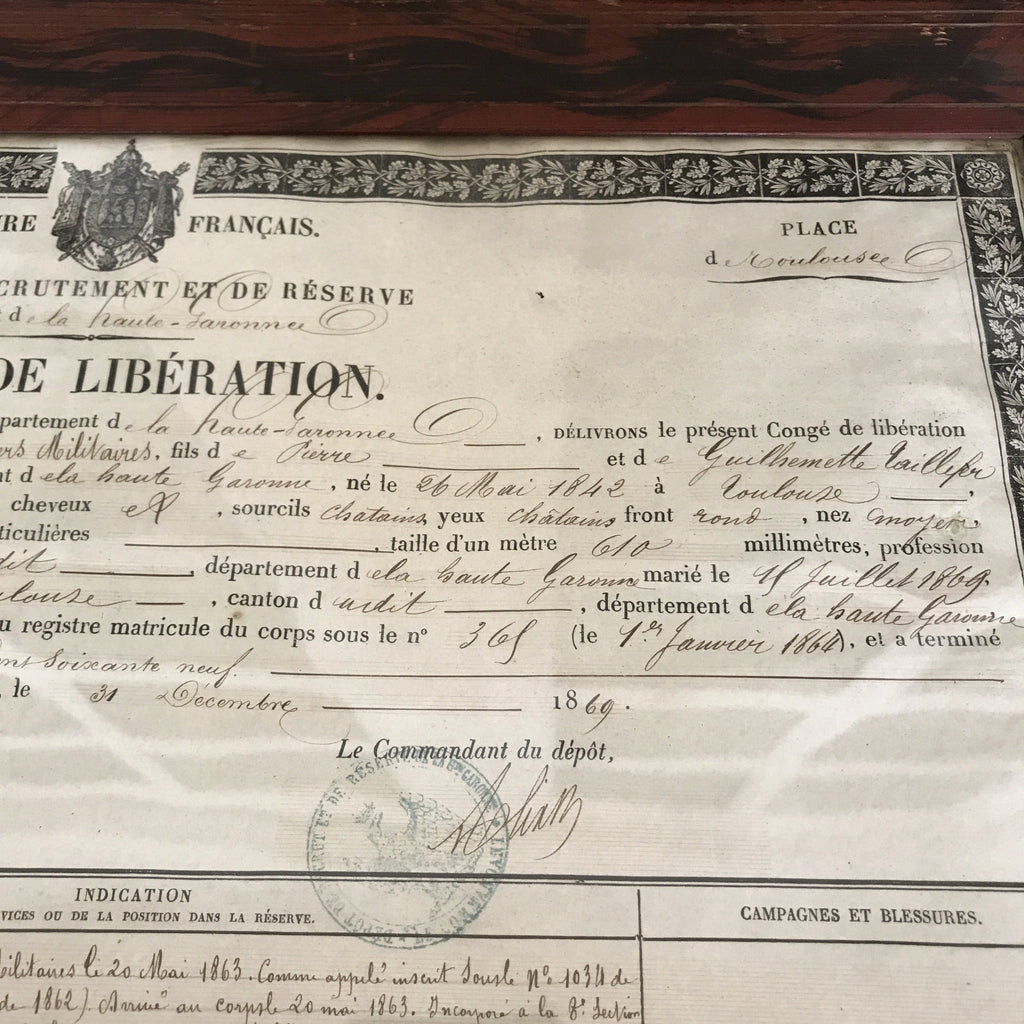 RE FRANÇAIS.
PLACE
de Toulouse
CRUTEMENT ET DE RÉSERVE
t de la haute-Garonne
DE LIBÉRATION.
partement de la haute-Garonne, DÉLIVRONS le présent Congé de libération
ers Militaires, fils de Pierre et de Guilhemette Taillefer
nt de la haute Garonne, né le 26 Mai 1842 à Toulouse,
cheveux et, sourcils chatains yeux châtains front rond, nez moyen
ticulières, taille d'un mètre 610 millimètres, profession
dit, département de la haute Garonne marié le 15 Juillet 1869.
ulouse, canton dudit, département de la haute Garonne
u registre matricule du corps sous le nº 365 (le 1er Janvier 1864), et a terminé
ent soixante neuf.
, le 31 Décembre 1869.
Le Commandant du dépôt,
DÉPÔT DE RECRUT ET DE RÉSERVE DE LA Hte GARONNE
INDICATION
VICES OU DE LA POSITION DANS LA RÉSERVE.
CAMPAGNES ET BLESSURES.
ilitaires le 20 Mai 1863. Comme appelé inscrit sous le Nº 1034 de
de 1862). Arrivé au corps le 20 mai 1863. Incorporé à la 8e Section